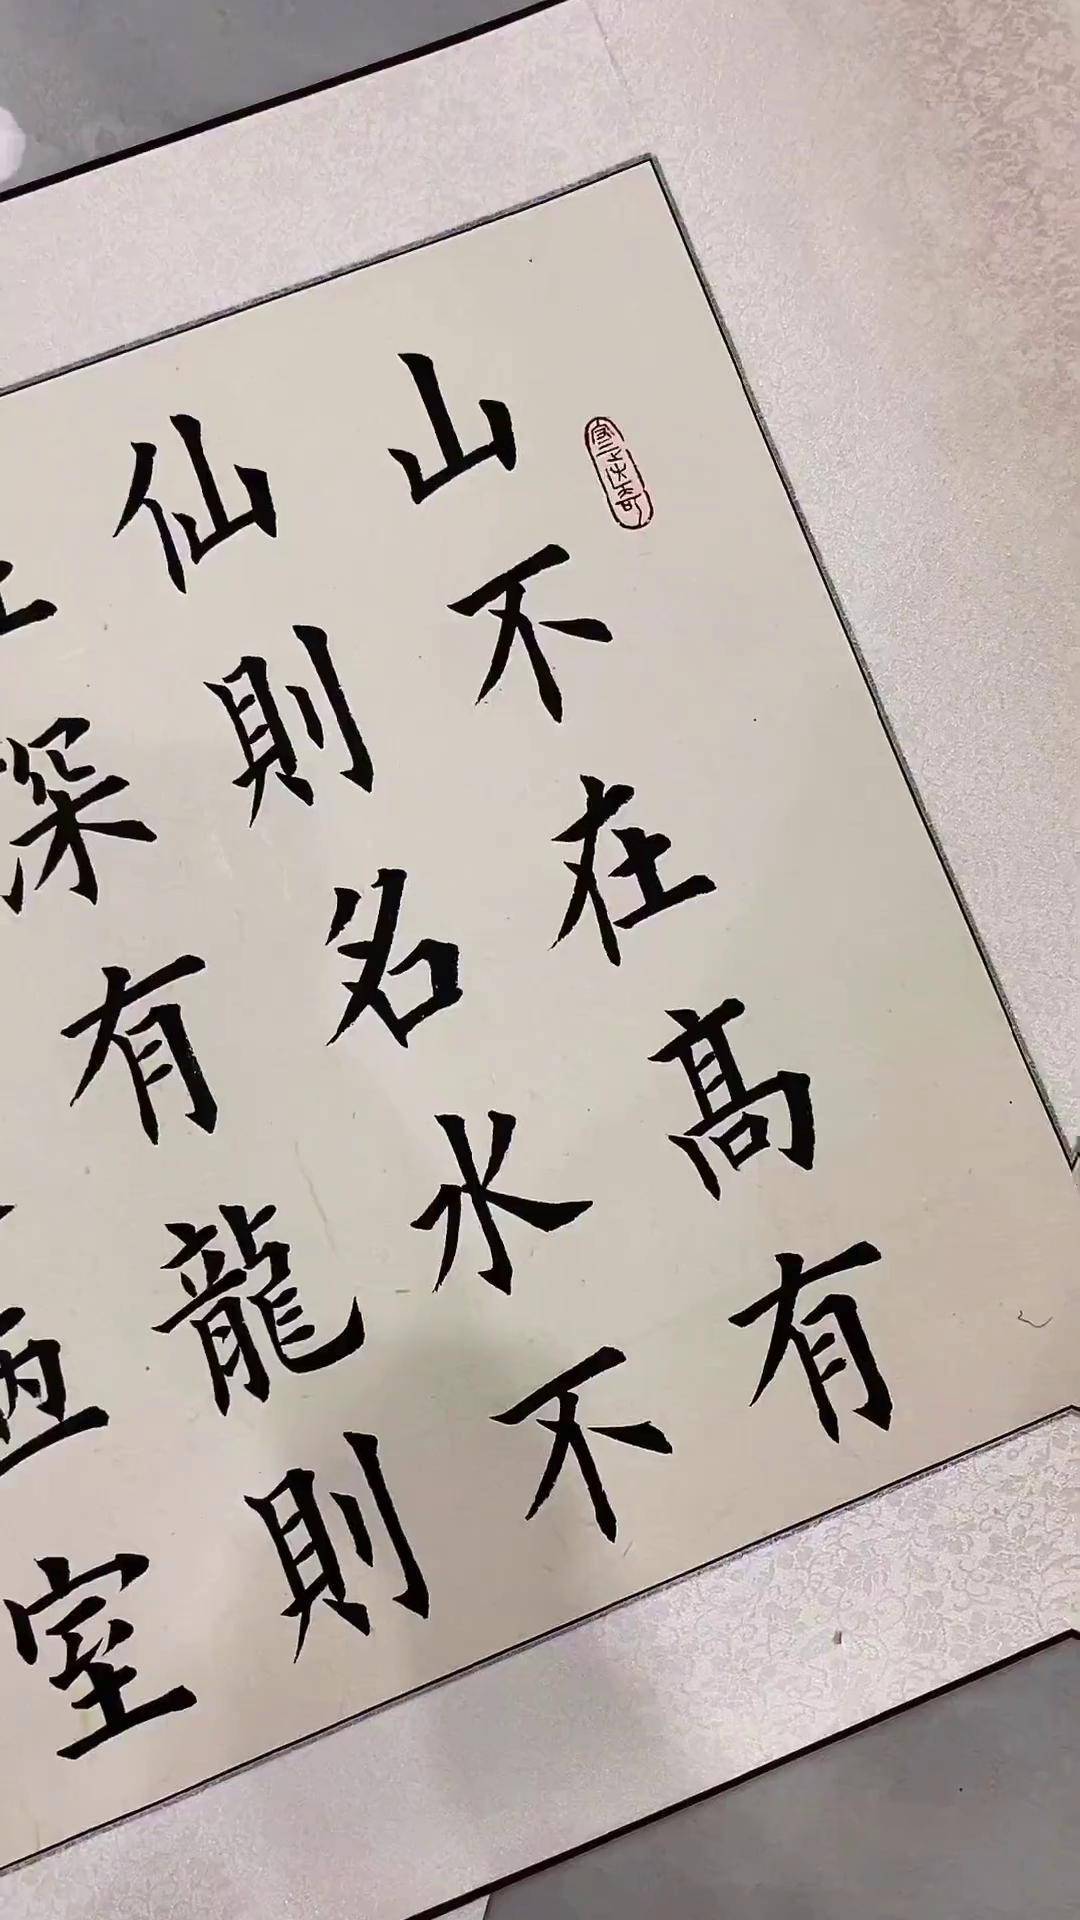 山不在髙有
仙則名水不
在深有龍則
陋室